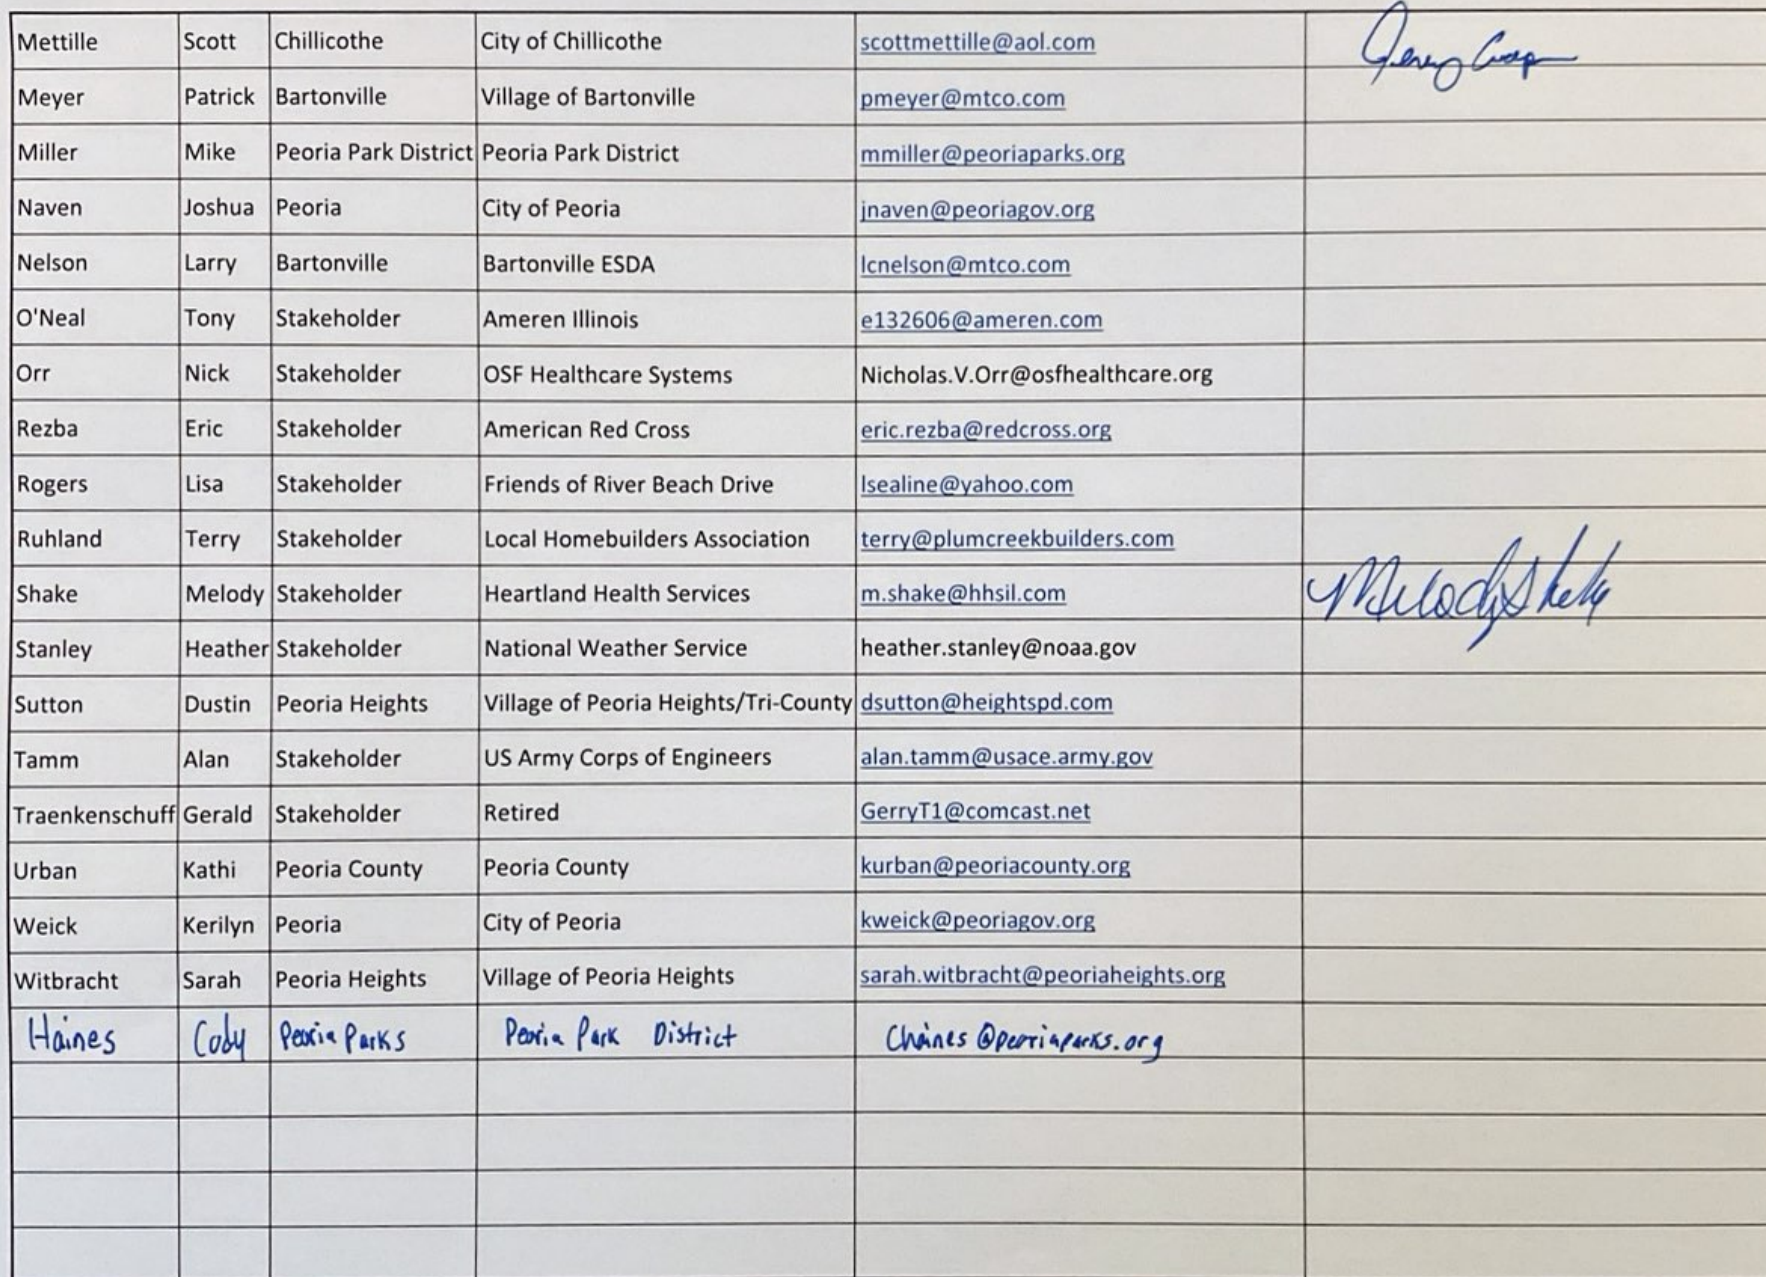 Mettille Scott Chillicothe City of Chillicothe scottmettille@aol.com
Meyer Patrick Bartonville Village of Bartonville pmeyer@mtco.com
Miller Mike Peoria Park District Peoria Park District mmiller@peoriaparks.org
Naven Joshua Peoria City of Peoria jnaven@peoriagov.org
Nelson Larry Bartonville Bartonville ESDA lcnelson@mtco.com
O'Neal Tony Stakeholder Ameren Illinois e132606@ameren.com
Orr Nick Stakeholder OSF Healthcare Systems Nicholas.V.Orr@osfhealthcare.org
Rezba Eric Stakeholder American Red Cross eric.rezba@redcross.org
Rogers Lisa Stakeholder Friends of River Beach Drive lsealine@yahoo.com
Ruhland Terry Stakeholder Local Homebuilders Association terry@plumcreekbuilders.com
Shake Melody Stakeholder Heartland Health Services m.shake@hhsil.com Melody Shake
Stanley Heather Stakeholder National Weather Service heather.stanley@noaa.gov
Sutton Dustin Peoria Heights Village of Peoria Heights/Tri-County dsutton@heightspd.com
Tamm Alan Stakeholder US Army Corps of Engineers alan.tamm@usace.army.gov
Traenkenschuff Gerald Stakeholder Retired GerryT1@comcast.net
Urban Kathi Peoria County Peoria County kurban@peoriacounty.org
Weick Kerilyn Peoria City of Peoria kweick@peoriagov.org
Witbracht Sarah Peoria Heights Village of Peoria Heights sarah.witbracht@peoriaheights.org
Haines Cody Peoria Parks Peoria Park District Chaines@peoriaparks.org